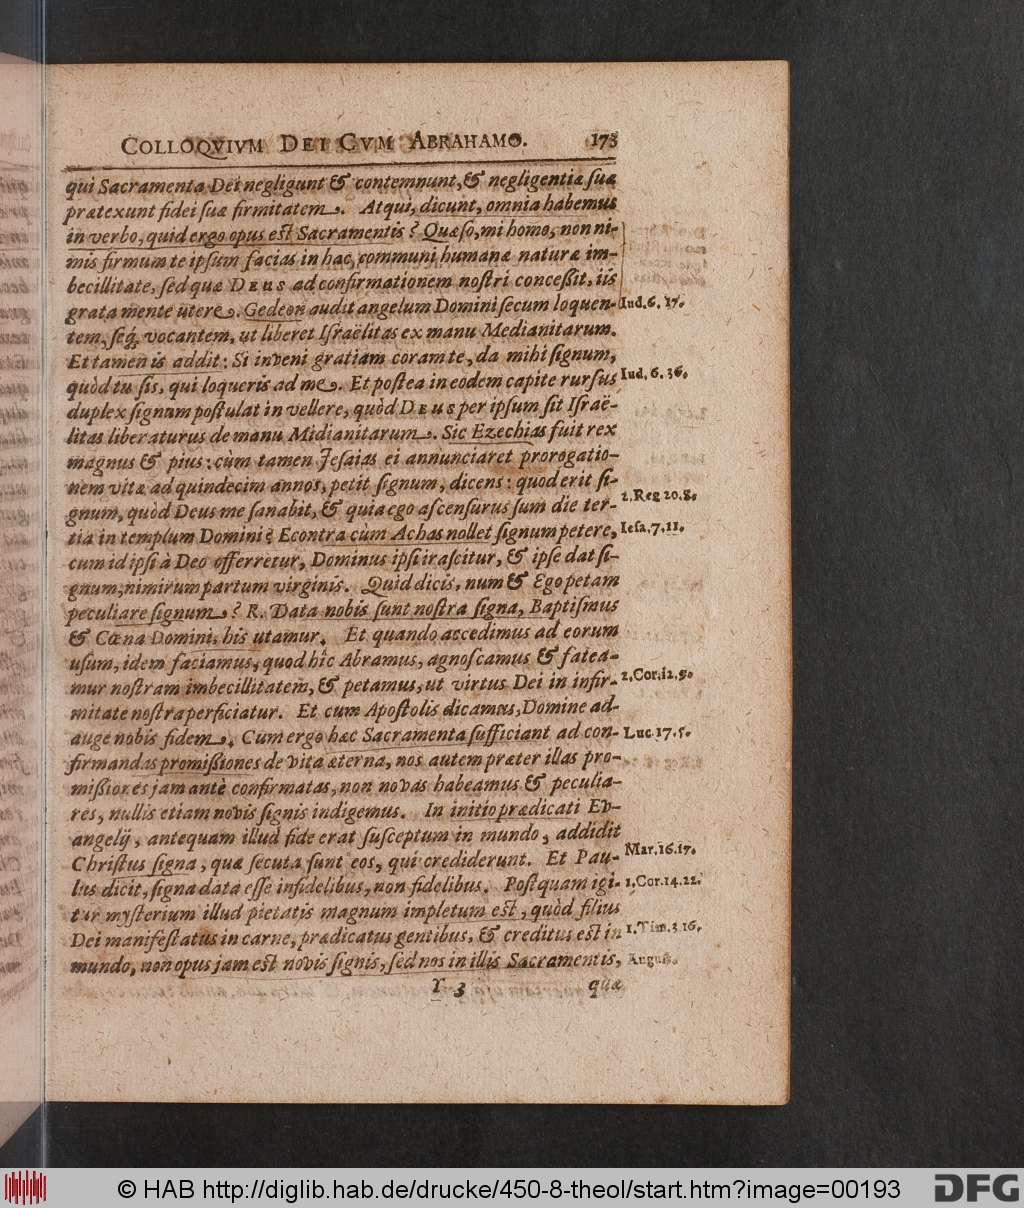 COLLOQVIVM DEI CVM ABRAHAMO. 173
qui Sacramenta Dei negligunt & contemnunt, & negligentiæ ſuæ
prætexunt fidei ſuæ firmitatem. Atqui, dicunt, omnia habemus
in verbo, quid ergo opus eſt Sacramentis? Quæſo, mi homo, non ni-
mis firmum te ipſum facias in hac, communi humanæ naturæ im-
becillitate, ſed quæ DEUS ad confirmationem noſtri conceſſit, iis
grata mente utere. Gedeon audit angelum Domini ſecum loquen- Iud. 6. 17.
tem, ſeq́; vocantem, ut liberet Iſraëlitas ex manu Medianitarum.
Et tamen is addit: Si inveni gratiam coram te, da mihi ſignum,
quòd tu ſis, qui loqueris ad me. Et poſtea in eodem capite rurſus Iud. 6. 36.
duplex ſignum poſtulat in vellere, quòd DEUS per ipſum ſit Iſraë-
litas liberaturus de manu Midianitarum. Sic Ezechias fuit rex
magnus & pius: cùm tamen Jeſaias ei annunciaret prorogatio-
nem vitæ ad quindecim annos, petit ſignum, dicens: quod erit ſi-
gnum, quòd Deus me ſanabit, & quia ego aſcenſurus ſum die ter- 2. Reg 20. 8.
tia in templum Domini? Econtra cùm Achas nollet ſignum petere, Ieſa. 7. 11.
cum id ipſi à Deo offerretur, Dominus ipſi iraſcitur, & ipſe dat ſi-
gnum, nimirum partum virginis. Quid dicis, num & Ego petam
peculiare ſignum? R. Data nobis ſunt noſtra ſigna, Baptiſmus
& Cœna Domini, his utamur. Et quando accedimus ad eorum
uſum, idem faciamus, quod hîc Abramus, agnoſcamus & fatea-
mur noſtram imbecillitatem, & petamus, ut virtus Dei in infir- 2. Cor. 12. 9.
mitate noſtra perficiatur. Et cum Apoſtolis dicamus, Domine ad-
auge nobis fidem. Cum ergo hæc Sacramenta ſufficiant ad con- Luc. 17. 5.
firmandas promiſſiones de vita æterna, nos autem præter illas pro-
miſſiones jam antè confirmatas, non novas habeamus & peculia-
res, nullis etiam novis ſignis indigemus. In initio prædicati Ev-
angelij, antequam illud fide erat ſuſceptum in mundo, addidit
Chriſtus ſigna, quæ ſecuta ſunt eos, qui crediderunt. Et Pau- Mar. 16. 17.
lus dicit, ſigna data eſſe infidelibus, non fidelibus. Poſtquam igi- 1. Cor. 14. 22.
tur myſterium illud pietatis magnum impletum eſt, quòd filius
Dei manifeſtatus in carne, prædicatus gentibus, & creditus eſt in 1. Tim. 3. 16.
mundo, non opus jam eſt novis ſignis, ſed nos in illis Sacramentis, Auguſt.
Y 3 quæ
© HAB http://diglib.hab.de/drucke/450-8-theol/start.htm?image=00193
DFG